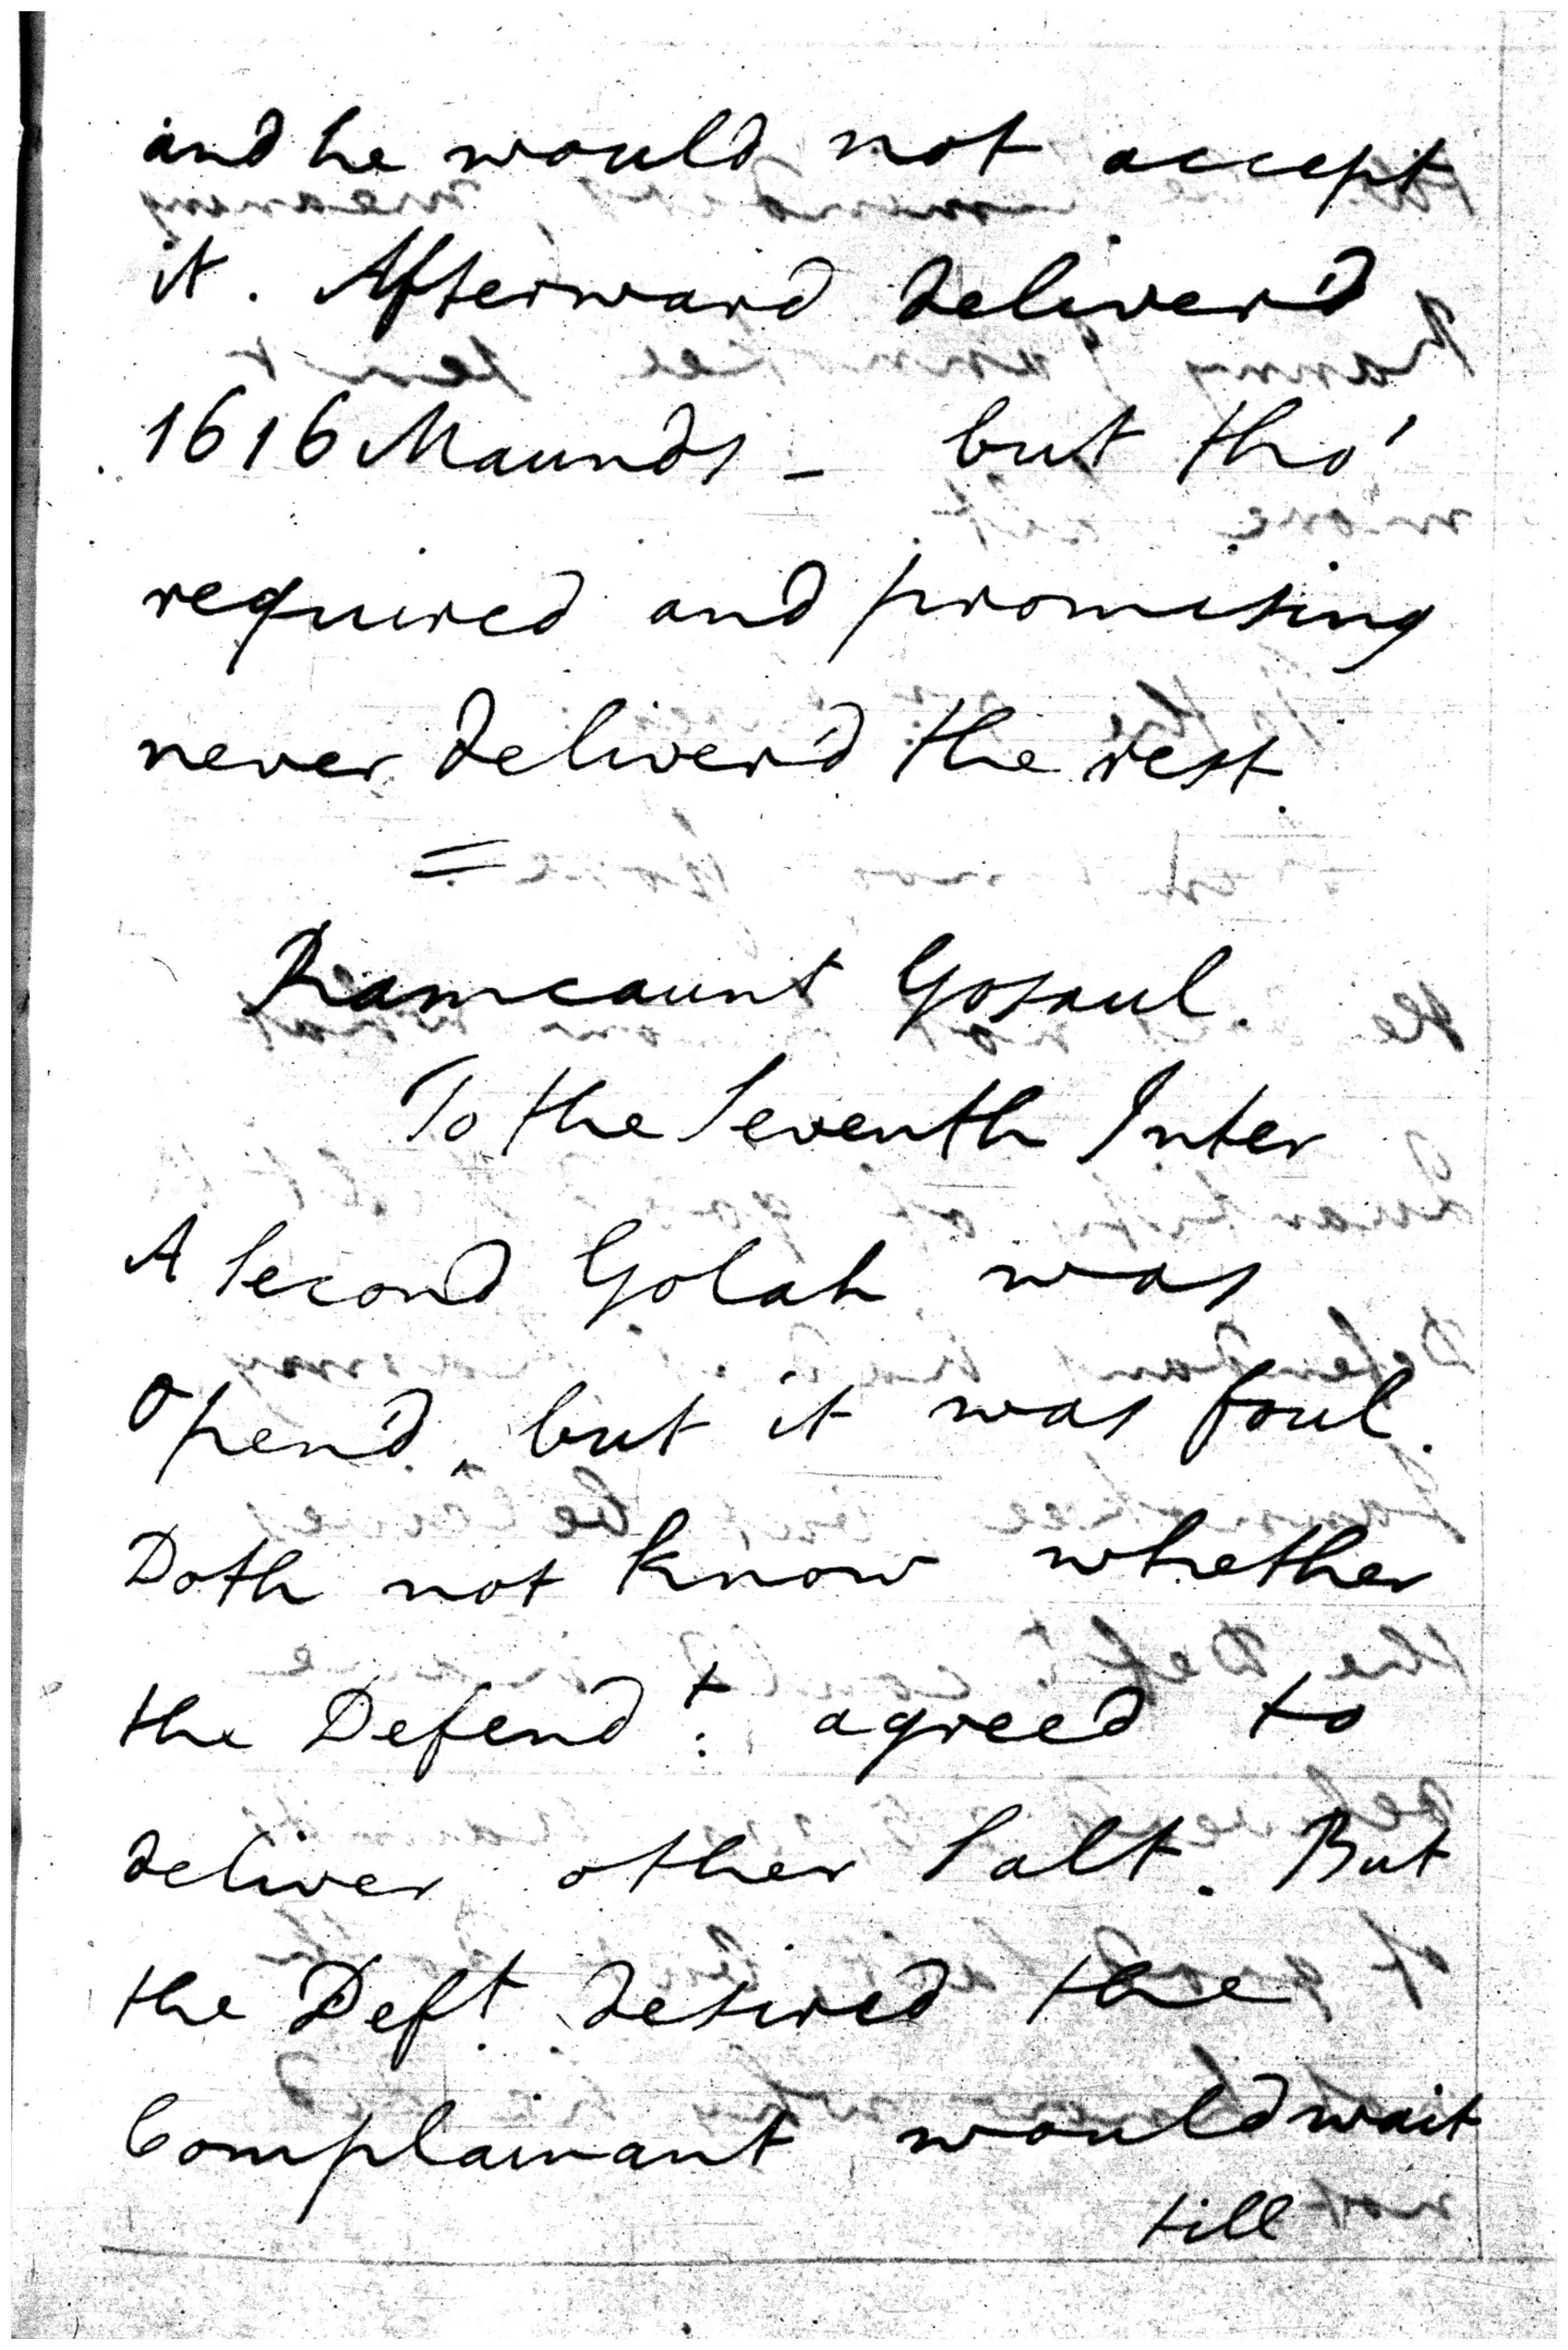 and he would not accept
it. Afterward deliver'd
1616 Maunds _ but tho'
required and promising
never deliver'd the rest.
=
Ramcaunt Gosaul.
To the Seventh Inter
A Second Golah was
Open'd, but it was foul.
Doth not know whether
the Defend.t agreed to
deliver other Salt. But
the Deft. desired the
Complainant would wait
till